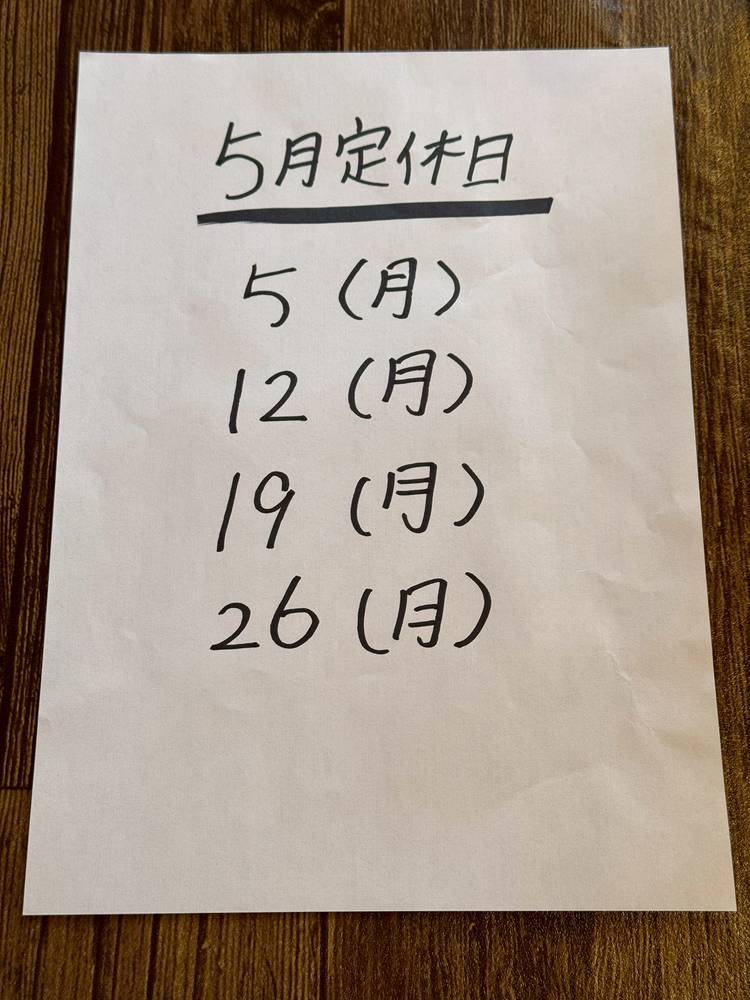 5月定休日
5（月）
12（月）
19（月）
26（月）